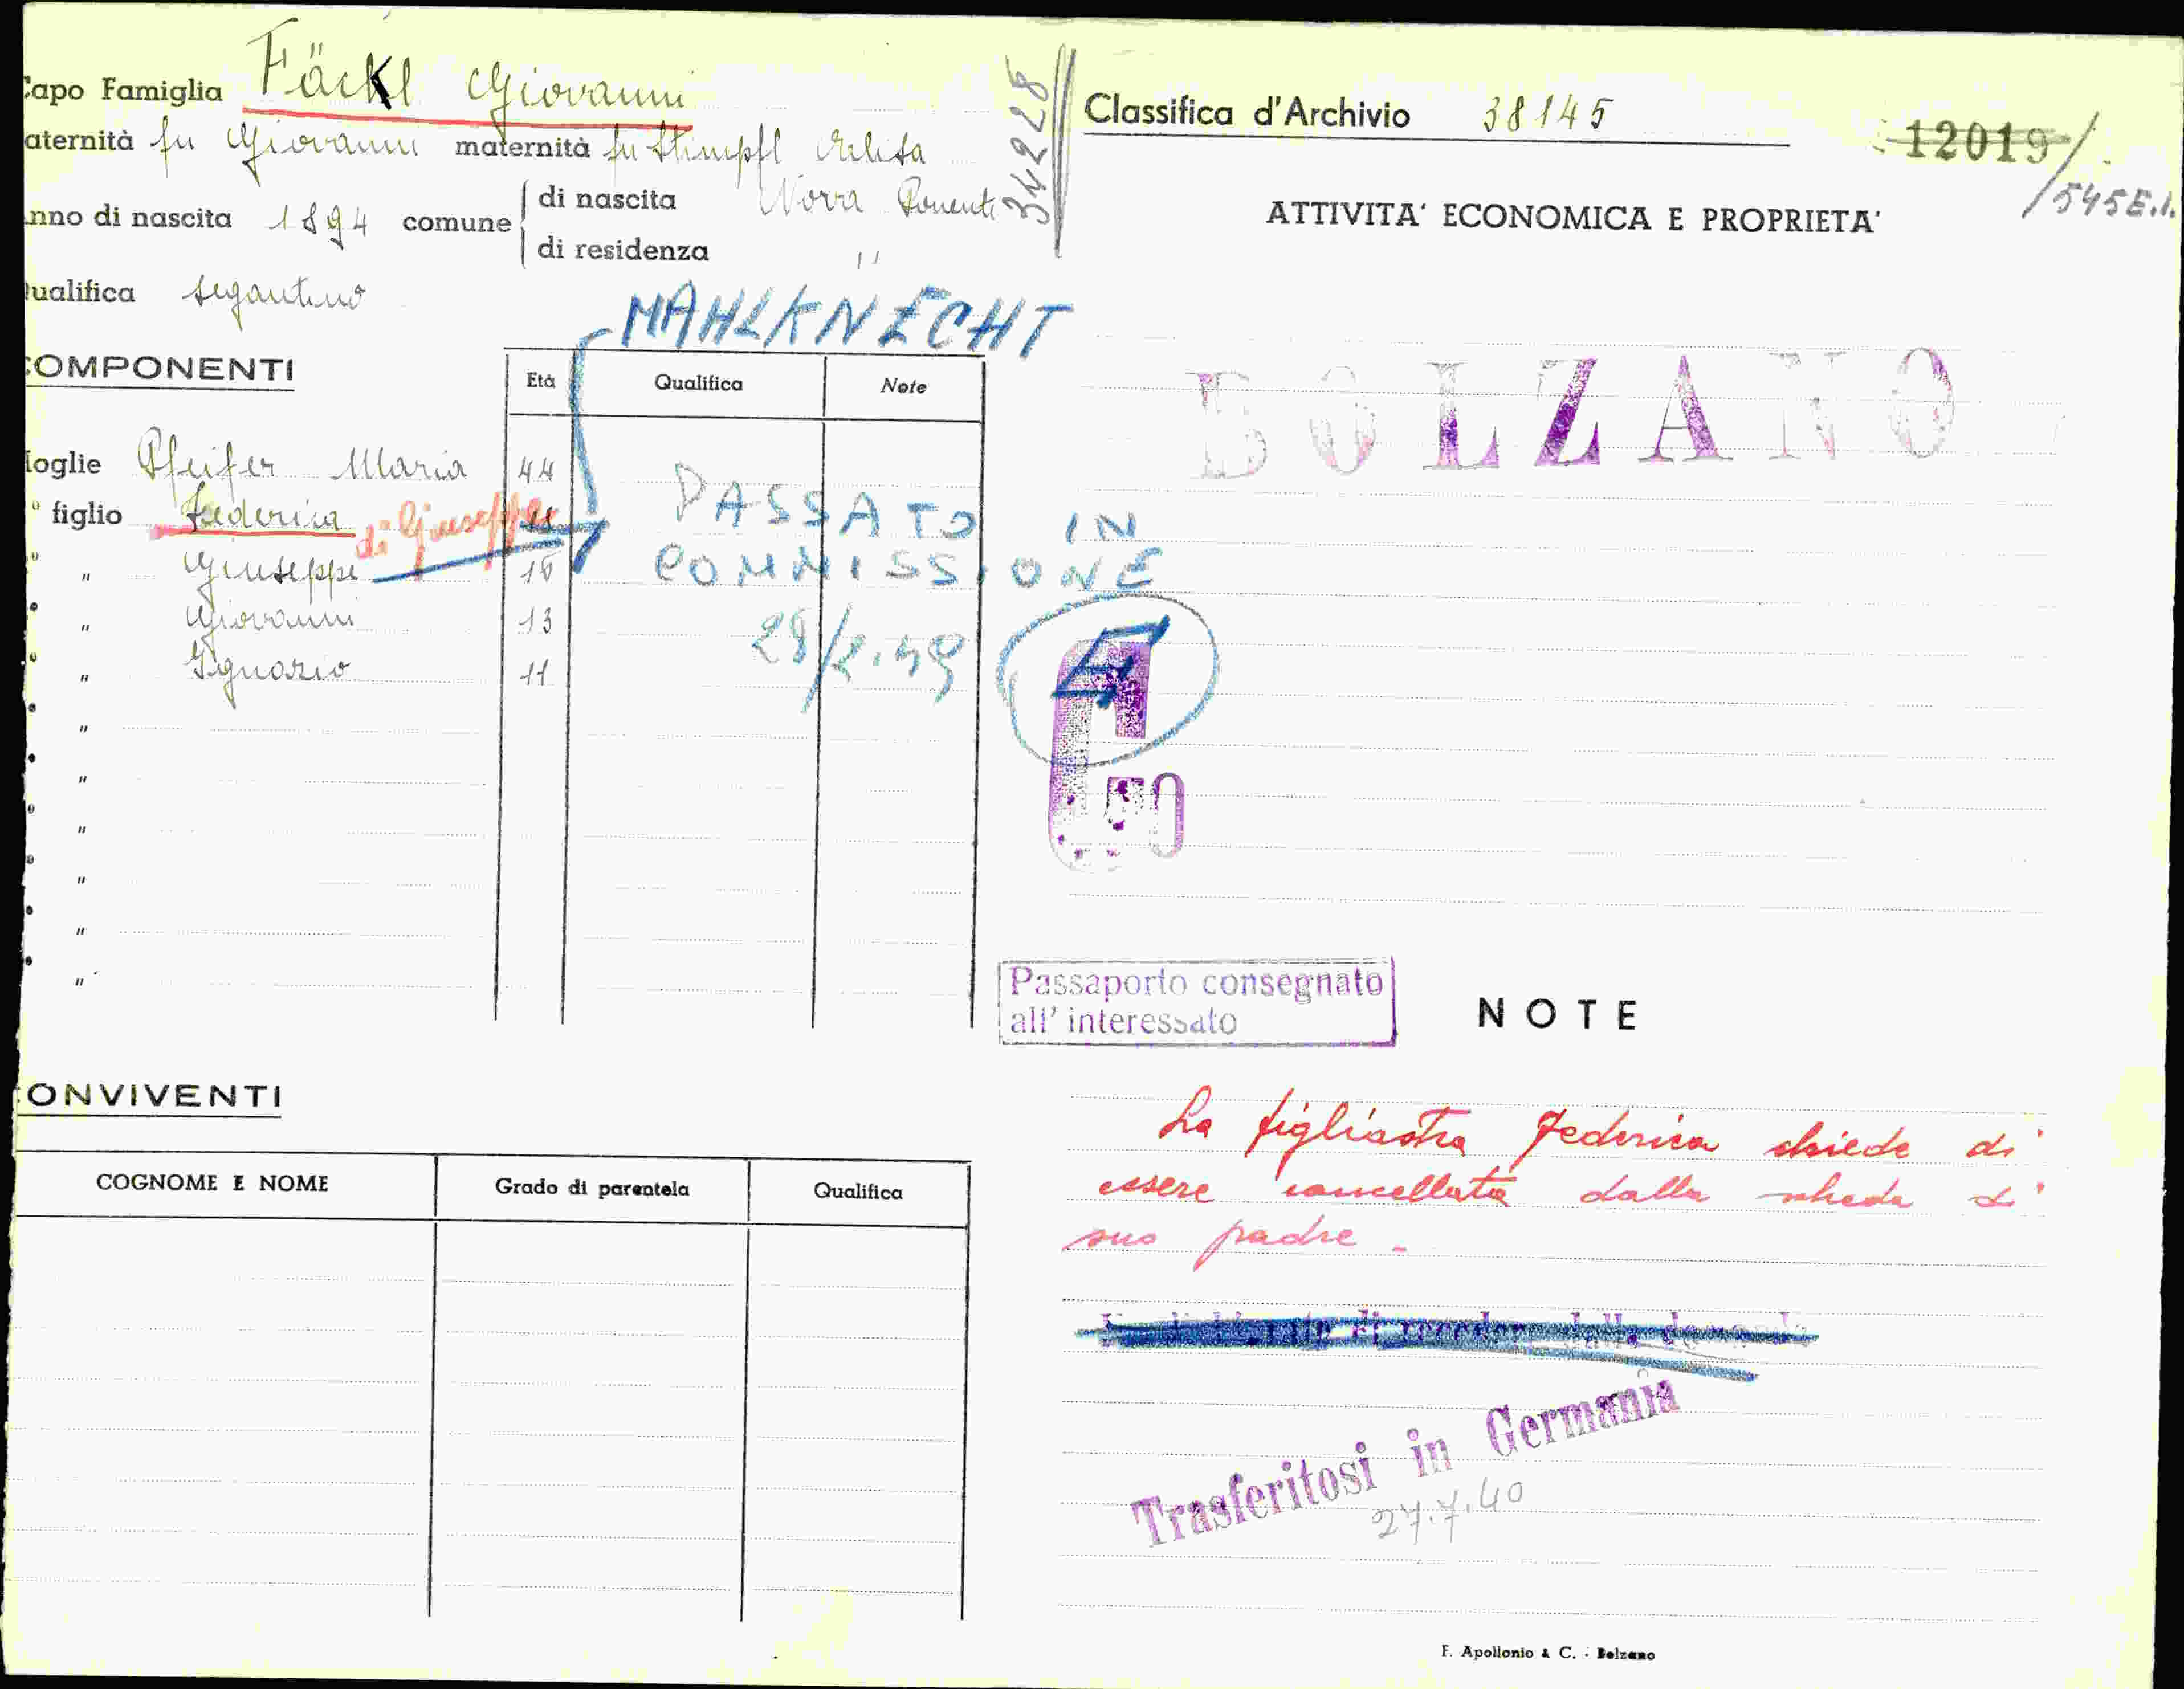 Capo Famiglia Fäckl Giovanni
aternità fu Giovanni maternità fu Stimpfl
nno di nascita 1894 comune di nascita Nova Ponente
di residenza "
ualifica segantino
34228
MAHLKNECHT
OMPONENTI
Età Qualifica Note
oglie Pfeifer Maria 44
° figlio Federica di Giuseppe
" Giuseppe 16
" Giovanni 13
" Ignazio 11
"
"
"
"
"
"
PASSATO IN
COMMISSIONE
ONVIVENTI
COGNOME E NOME Grado di parentela Qualifica
Classifica d'Archivio 38145
12019
/545E.I.
ATTIVITA' ECONOMICA E PROPRIETA'
BOLZANO
Passaporto consegnato
all' interessato
NOTE
La figliastra Federica chiede di
essere cancellata dalla scheda di
suo padre -
Trasferitosi in Germania
27.7.40
F. Apollonio & C. - Bolzano